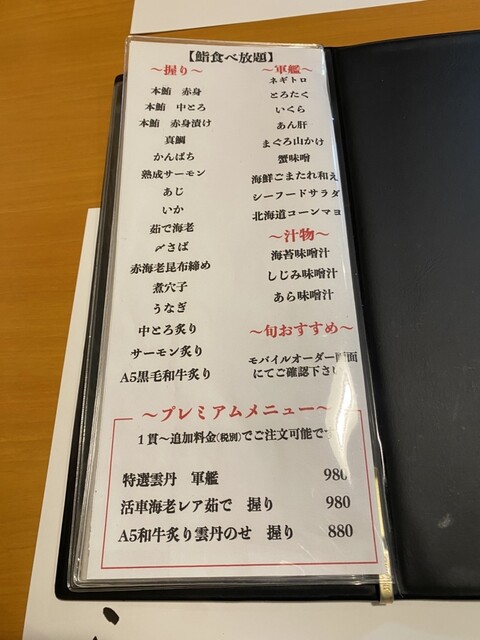 【鮨食べ放題】
～握り～
本鮪　赤身
本鮪　中とろ
本鮪　赤身漬け
真鯛
かんぱち
熟成サーモン
あじ
いか
茹で海老
〆さば
赤海老昆布締め
煮穴子
うなぎ
中とろ炙り
サーモン炙り
A5黒毛和牛炙り
～軍艦～
ネギトロ
とろたく
いくら
あん肝
まぐろ山かけ
蟹味噌
海鮮ごまたれ和え
シーフードサラダ
北海道コーンマヨ
～汁物～
海苔味噌汁
しじみ味噌汁
あら味噌汁
～旬おすすめ～
モバイルオーダー画面
にてご確認下さい
～プレミアムメニュー～
１貫～追加料金(税別)でご注文可能です
特選雲丹　軍艦　980
活車海老レア茹で　握り　980
A5和牛炙り雲丹のせ　握り　880